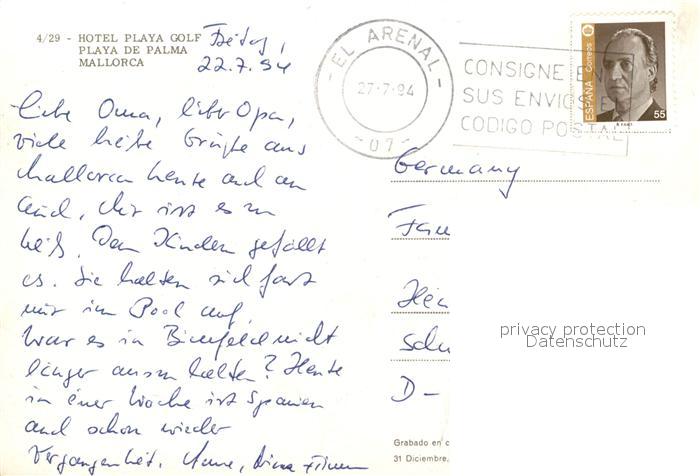 4/29 - HOTEL PLAYA GOLF
PLAYA DE PALMA
MALLORCA
Freitag,
22.7.94
Liebe Oma, lieber Opa,
viele liebe Grüße aus
Mallorca heute auch an
Euch. Mir ist es zu
heiß. Den Kindern gefällt
es. Sie halten sich fast
nur im Pool auf.
War es in Binsfeld nicht
länger auszuhalten? Heute
in einer Woche ist Spanien
auch schon wieder
Vergangenheit.
EL ARENAL
27-7-94
-07-
CONSIGNE EN
SUS ENVIOS EL
CODIGO POSTAL
ESPAÑA Correos
55
Germany
Fam
D-
privacy protection
Datenschutz
Grabado en c
31 Diciembre,